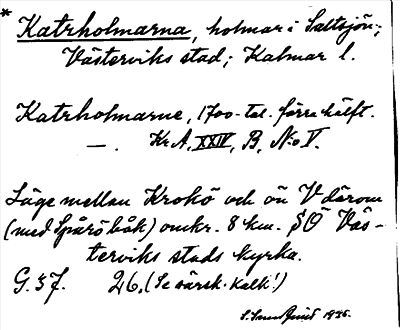 * Katrholmarna, holmar i Saltsjön;
Västerviks stad; Kalmar l.
Katrholmarne, 1700-tal. förra hälft.
—. Kr. A, XXIV, B, No V.
Läge mellan Krokö och ön V därom
(med Spårö båk) omkr. 8 km. SÖ Väs-
terviks stads kyrka.
G. 37. 26. (Se särsk. Kalk!)
1935.